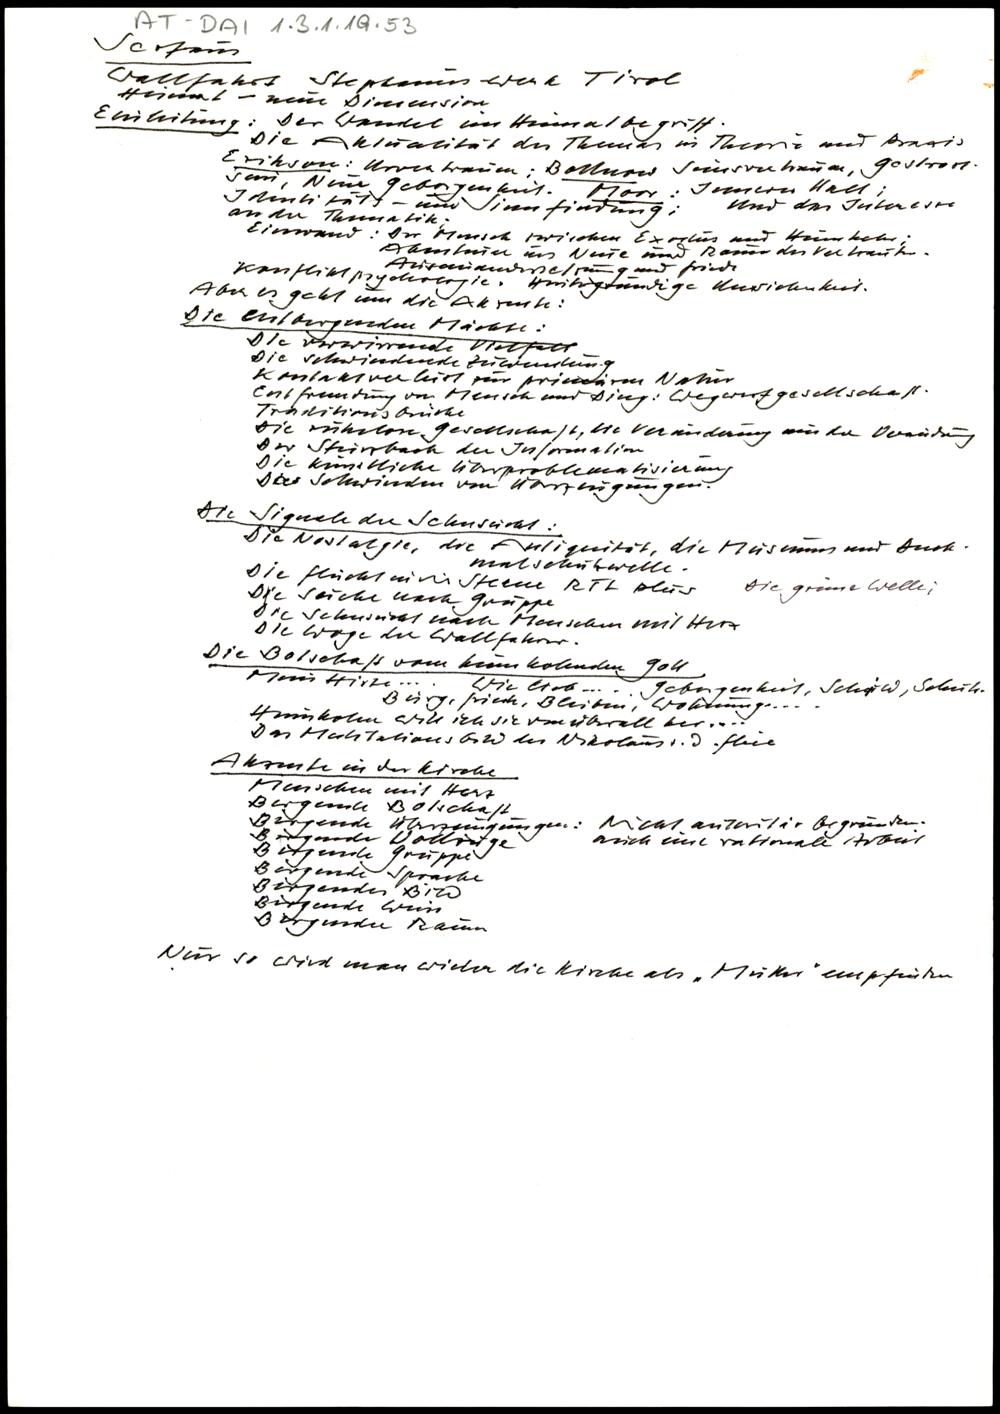 AT-DAI 1.3.1.19.53
Serfaus
Wallfahrt Stephanuswerk Tirol
Heimat – neue Dimension
Einleitung: Der Wandel im Heimatbegriff.
Die Aktualität des Themas in Theorie und Praxis
Erikson: Urvertrauen; Bollnow Seinsvertrauen, Getrost-
sein, Neue Geborgenheit. Moor: Innerer Halt;
Identitäts- und Sinnfindung; Und das Interesse
an der Thematik.
Einwand: Der Mensch zwischen Exodus und Heimkehr;
Abenteuer ins Neue und Raum des Vertrauten.
Auseinandersetzung und Friede
Konfliktpsychologie. Hintergründige Unsicherheit.
Aber es geht um die Akzente:
Die entbergenden Mächte:
Die verwirrende Vielfalt
Die schwindende Zuwendung
Kontaktverlust zur primären Natur
Entfremdung von Mensch und Ding: Wegwerfgesellschaft.
Traditionsbrüche
Die ruhelose Gesellschaft, die Veränderung um der Veränderung
Der Sturzbach der Information
Die künstliche Überproblematisierung
Das Schwinden von Überzeugungen.
Die Signale der Sehnsucht:
Die Nostalgie, die Antiquität, die Museums und Denk-
malschutzwelle.
Die Flucht in die Szene RTL plus Die grüne Welle;
Die Suche nach Gruppe
Die Sehnsucht nach Menschen mit Herz
Die Woge der Wallfahrer.
Die Botschaft vom heimholenden Gott
Mein Hirte.... Wie lieb.... Geborgenheit, Schild, Schutz.
Burg, Friede, Bleiben, Wohnung.....
Heimholen will ich sie von überall her....
Das Meditationsbild des Nikolaus v. d. Flüe
Akzente in der Kirche
Menschen mit Herz
Bergende Botschaft
Bergende Überzeugungen: Nicht autoritär begründen.
Bergende Vollzüge auch eine rationale Arbeit
Bergende Gruppe
Bergende Sprache
Bergendes Bild
Bergende
Bergender Raum
Nur so wird man wieder die Kirche als „Mutter" empfinden